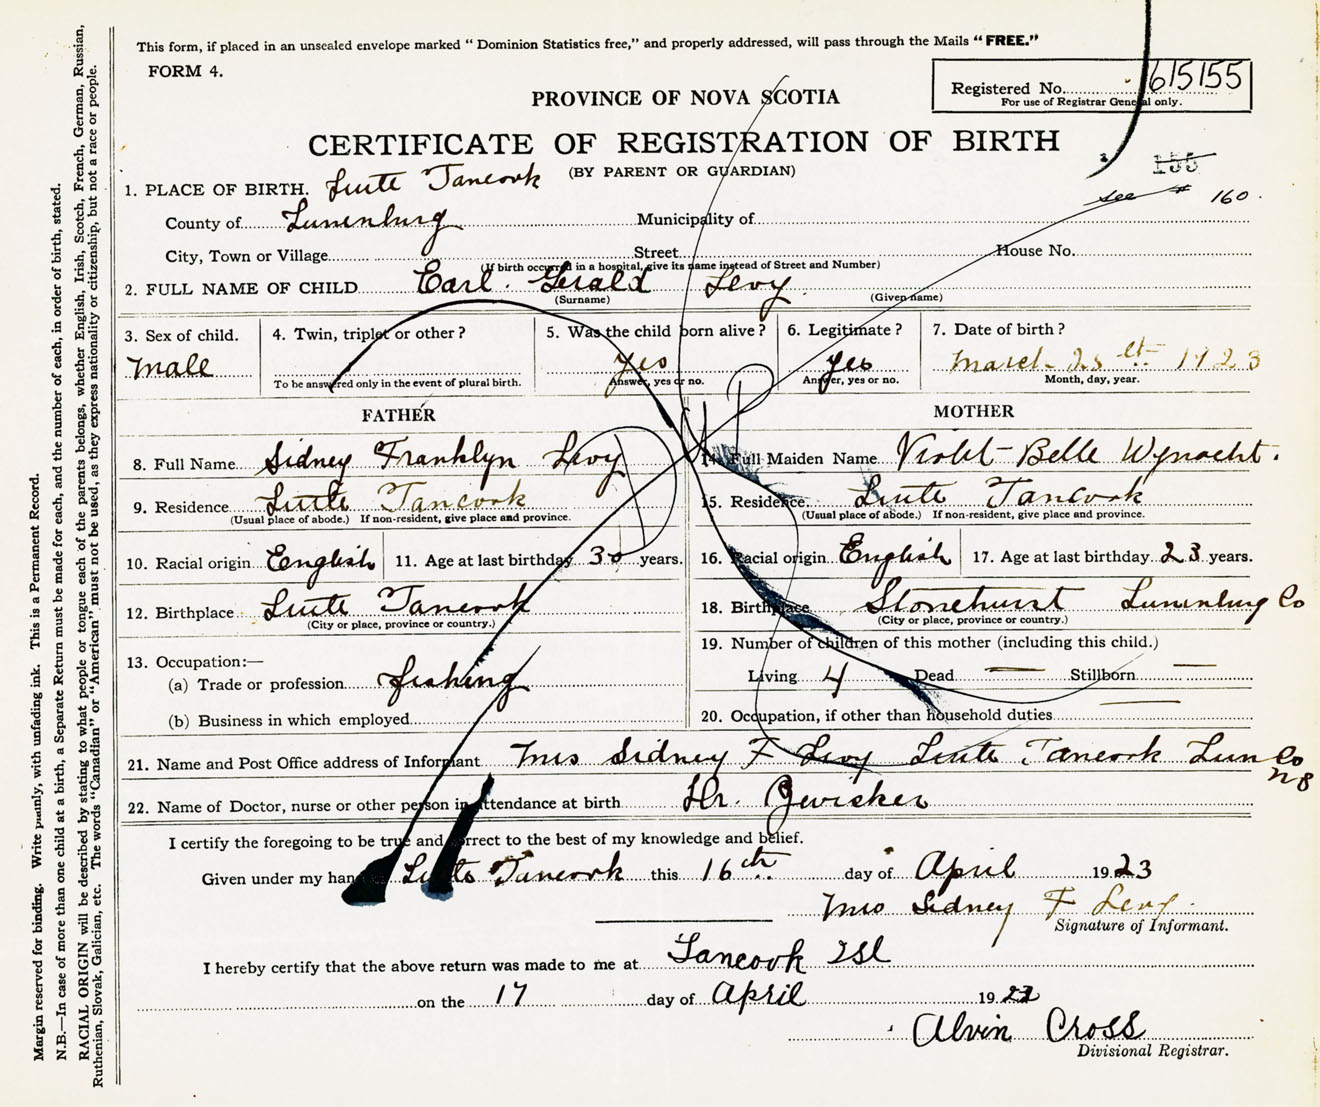 This form, if placed in an unsealed envelope marked "Dominion Statistics free," and properly addressed, will pass through the Mails "FREE."
FORM 4.
Registered No. 615155
For use of Registrar General only.
PROVINCE OF NOVA SCOTIA
CERTIFICATE OF REGISTRATION OF BIRTH
(BY PARENT OR GUARDIAN)
155
see # 160
1. PLACE OF BIRTH. Little Tancook
County of Lunenburg Municipality of
City, Town or Village Street House No.
(If birth occurred in a hospital, give its name instead of Street and Number)
2. FULL NAME OF CHILD Earl Gerald Levy
(Surname) (Given name)
3. Sex of child. 4. Twin, triplet or other? 5. Was the child born alive? 6. Legitimate? 7. Date of birth?
Male yes yes March 25 1923
To be answered only in the event of plural birth. Answer, yes or no. Answer, yes or no. Month, day, year.
FATHER MOTHER
8. Full Name Sidney Franklyn Levy 14. Full Maiden Name Violet Belle Wynacht.
9. Residence Little Tancook 15. Residence Little Tancook
(Usual place of abode.) If non-resident, give place and province. (Usual place of abode.) If non-resident, give place and province.
10. Racial origin English 11. Age at last birthday 30 years. 16. Racial origin English 17. Age at last birthday 23 years.
12. Birthplace Little Tancook 18. Birthplace Stonehurst Lunenburg Co
(City or place, province or country.) (City or place, province or country.)
19. Number of children of this mother (including this child.)
13. Occupation:—
(a) Trade or profession fishing Living 4 Dead — Stillborn —
(b) Business in which employed 20. Occupation, if other than household duties
21. Name and Post Office address of Informant Mrs Sidney F Levy Little Tancook Lun Co
NS
22. Name of Doctor, nurse or other person in attendance at birth Dr. Zwicker
I certify the foregoing to be true and correct to the best of my knowledge and belief.
Given under my hand Little Tancook this 16th day of April 1923
Mrs Sidney F Levy
Signature of Informant.
I hereby certify that the above return was made to me at Tancook Isl
on the 17 day of April 1923
Alvin Cross
Divisional Registrar.
Margin reserved for binding. Write plainly, with unfading ink. This is a Permanent Record.
N.B.—In case of more than one child at a birth, a Separate Return must be made for each, and the number of each, in order of birth, stated.
RACIAL ORIGIN will be described by stating to what people or tongue each of the parents belongs, whether English, Irish, Scotch, French, German, Russian,
Ruthenian, Slovak, Galician, etc. The words "Canadian" or "American" must not be used, as they express nationality or citizenship, but not a race or people.